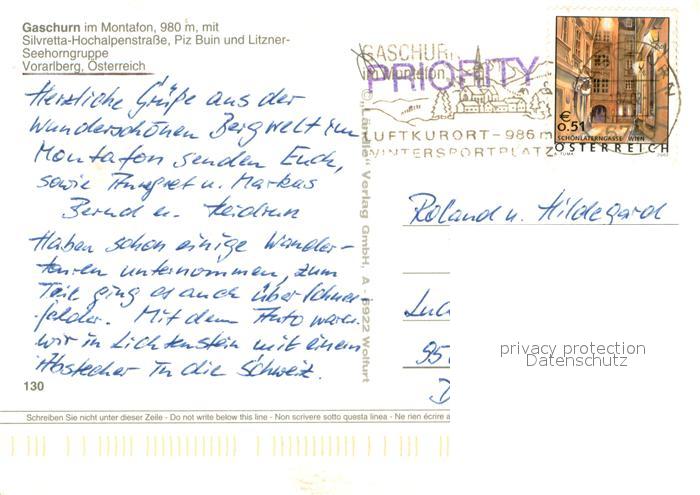 Gaschurn im Montafon, 980 m, mit
Silvretta-Hochalpenstraße, Piz Buin und Litzner-
Seehorngruppe
Vorarlberg, Österreich
Herzliche Grüße aus der
wunderschönen Bergwelt im
Montafon senden Euch,
sowie Annegret u. Markus
Bernd u. Heidrun
Haben schon einige Wander-
touren unternommen, zum
Teil ging es auch über Schnee-
felder. Mit dem Auto waren
wir in Lichtenstein mit einem
Abstecher in die Schweiz.
130
© "Ländle" Verlag GmbH, A - 6922 Wolfurt
GASCHURN
im Montafon
PRIORITY
LUFTKURORT - 986 m
WINTERSPORTPLATZ
€
0.51
SCHÖNLATERNGASSE WIEN
ÖSTERREICH
Roland u. Hildegard
Luc
95
D
privacy protection
Datenschutz
Schreiben Sie nicht unter dieser Zeile - Do not write below this line - Non scrivere sotto questa linea - Ne rien écrire a